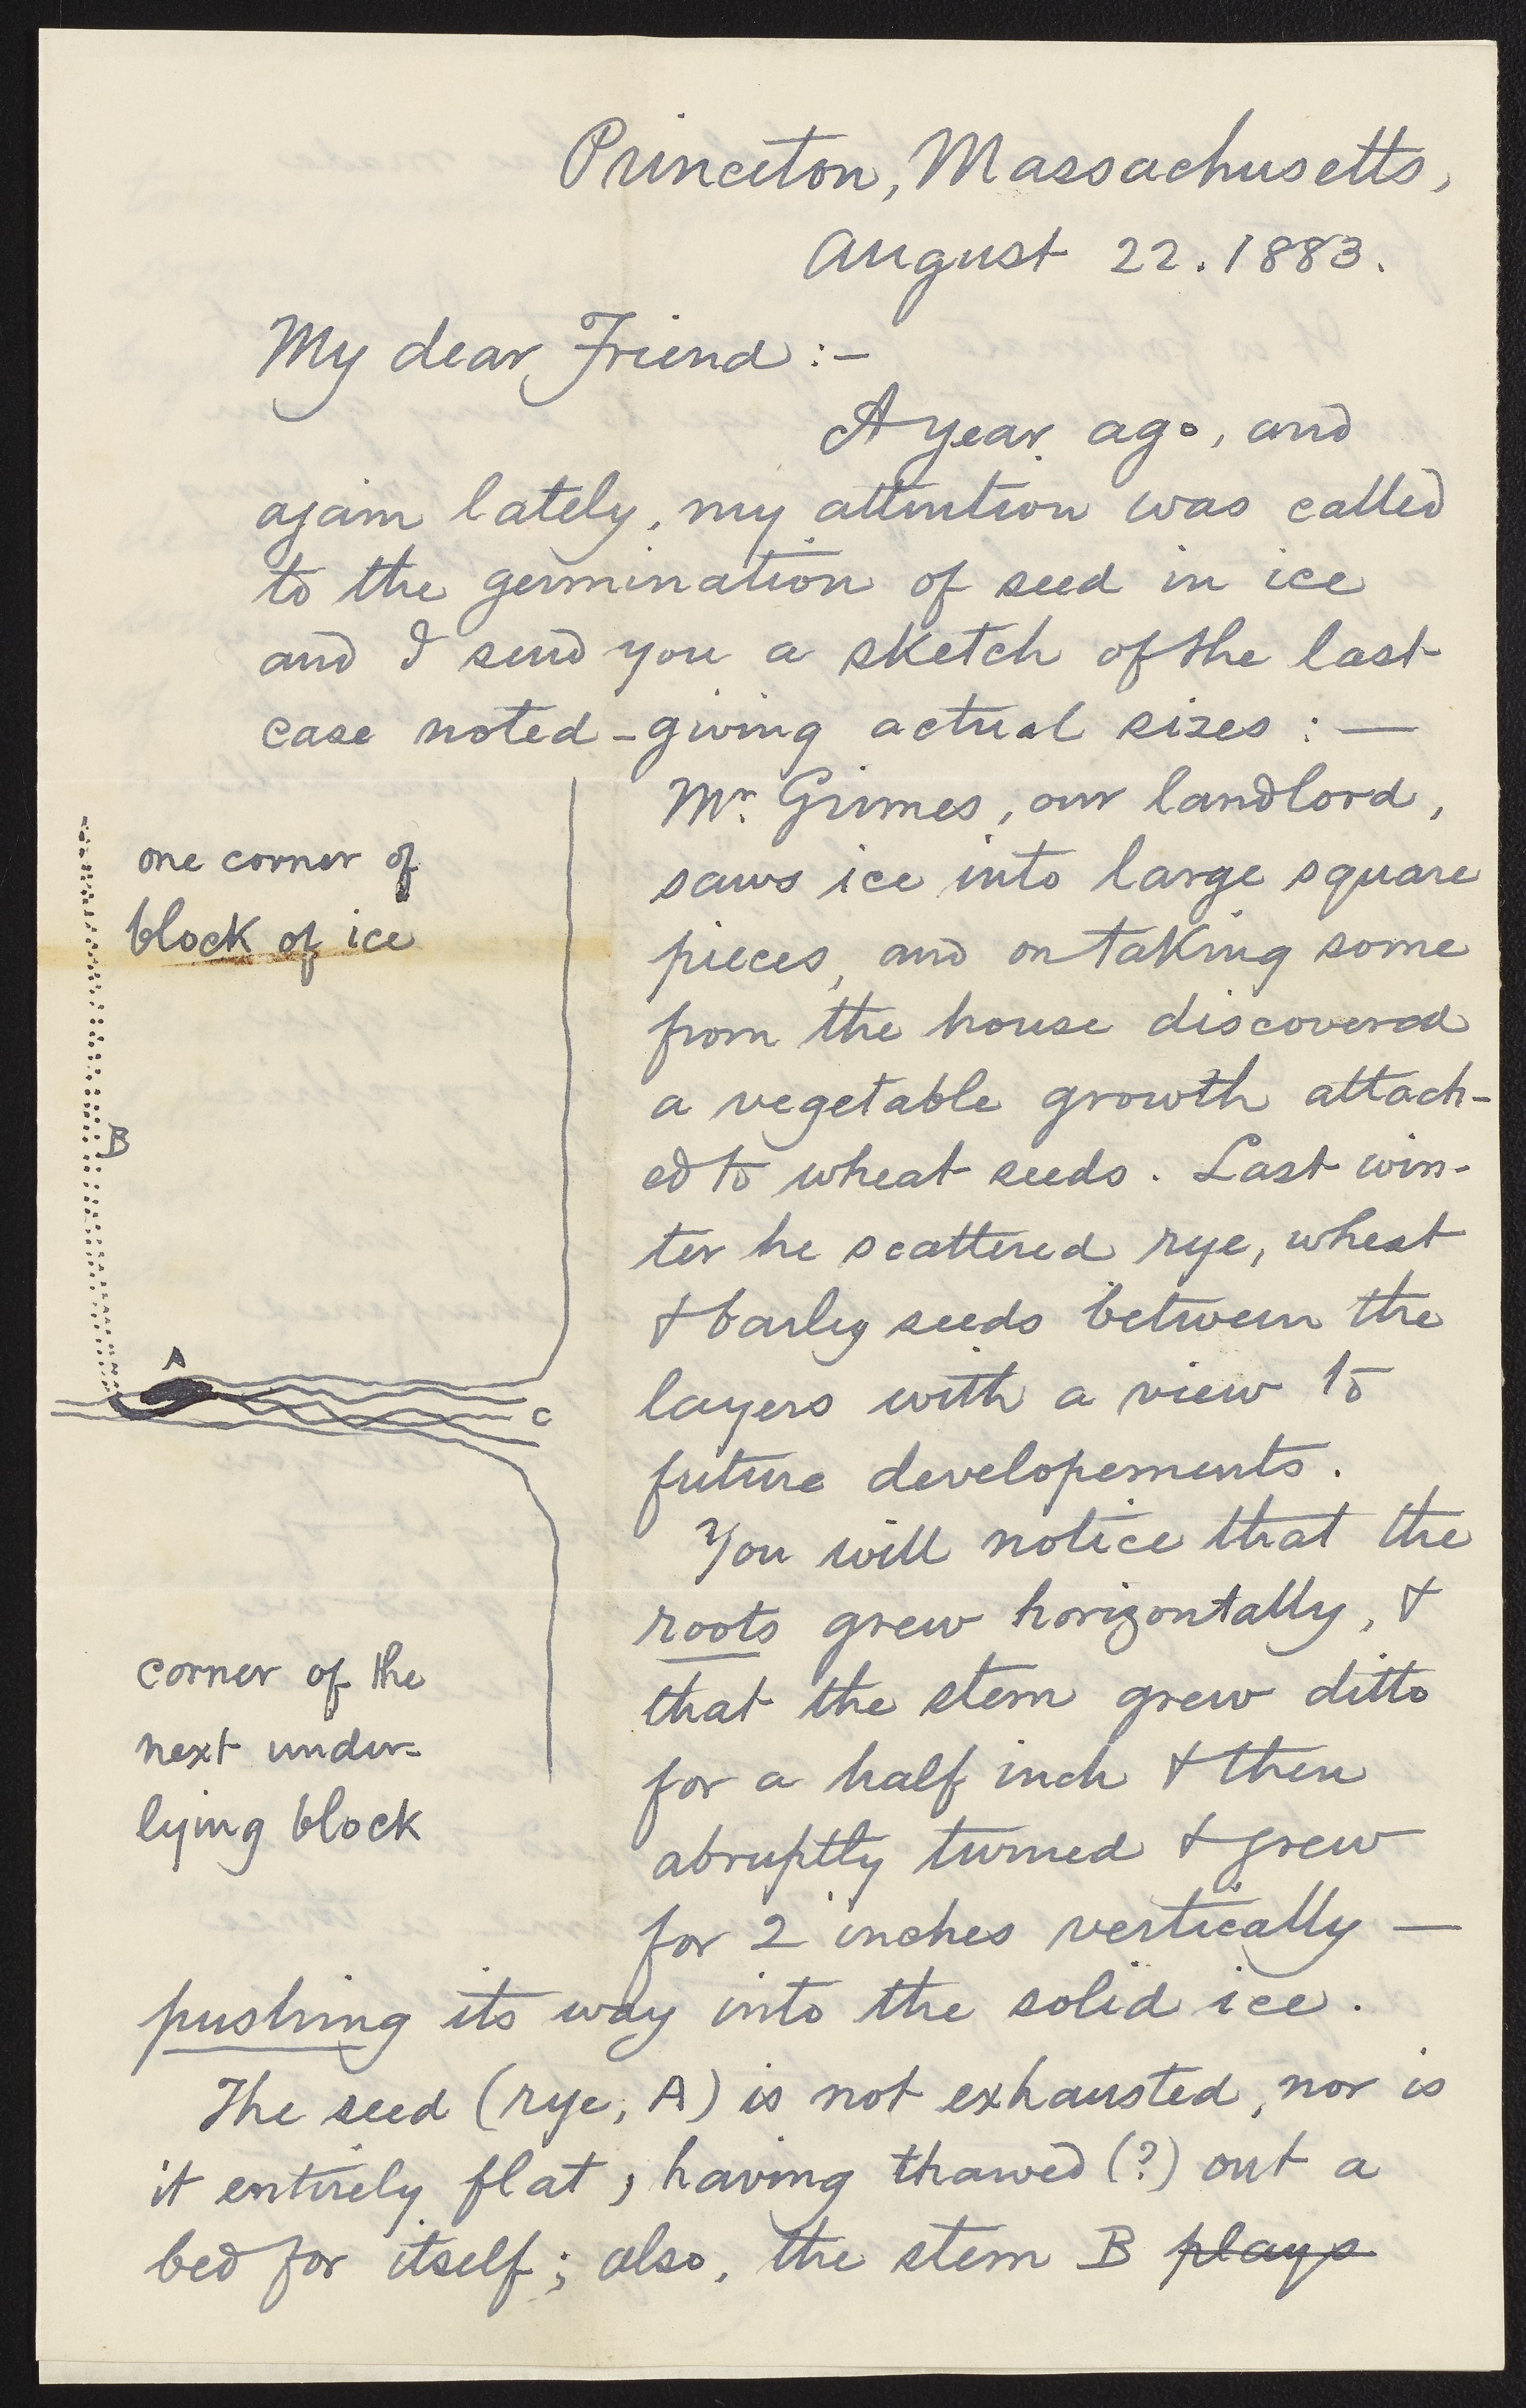 Princeton, Massachusetts,
August 22. 1883.
My dear Friend :—
A year ago, and
again lately, my attention was called
to the germination of seed in ice
and I send you a sketch of the last
case noted – giving actual sizes : —
one corner of
block of ice
B
A
C
corner of the
next under-
lying block
Mr. Grimes, our landlord,
saws ice into large square
pieces, and on taking some
from the house discovered
a vegetable growth attach-
ed to wheat seeds. Last win-
ter he scattered rye, wheat
& barley seeds between the
layers with a view to
future developements.
You will notice that the
roots grew horizontally, &
that the stem grew ditto
for a half inch & then
abruptly turned & grew
for 2 inches vertically —
pushing its way into the solid ice.
The seed (rye, A) is not exhausted, nor is
it entirely flat, having thawed (?) out a
bed for itself; also, the stem B plays